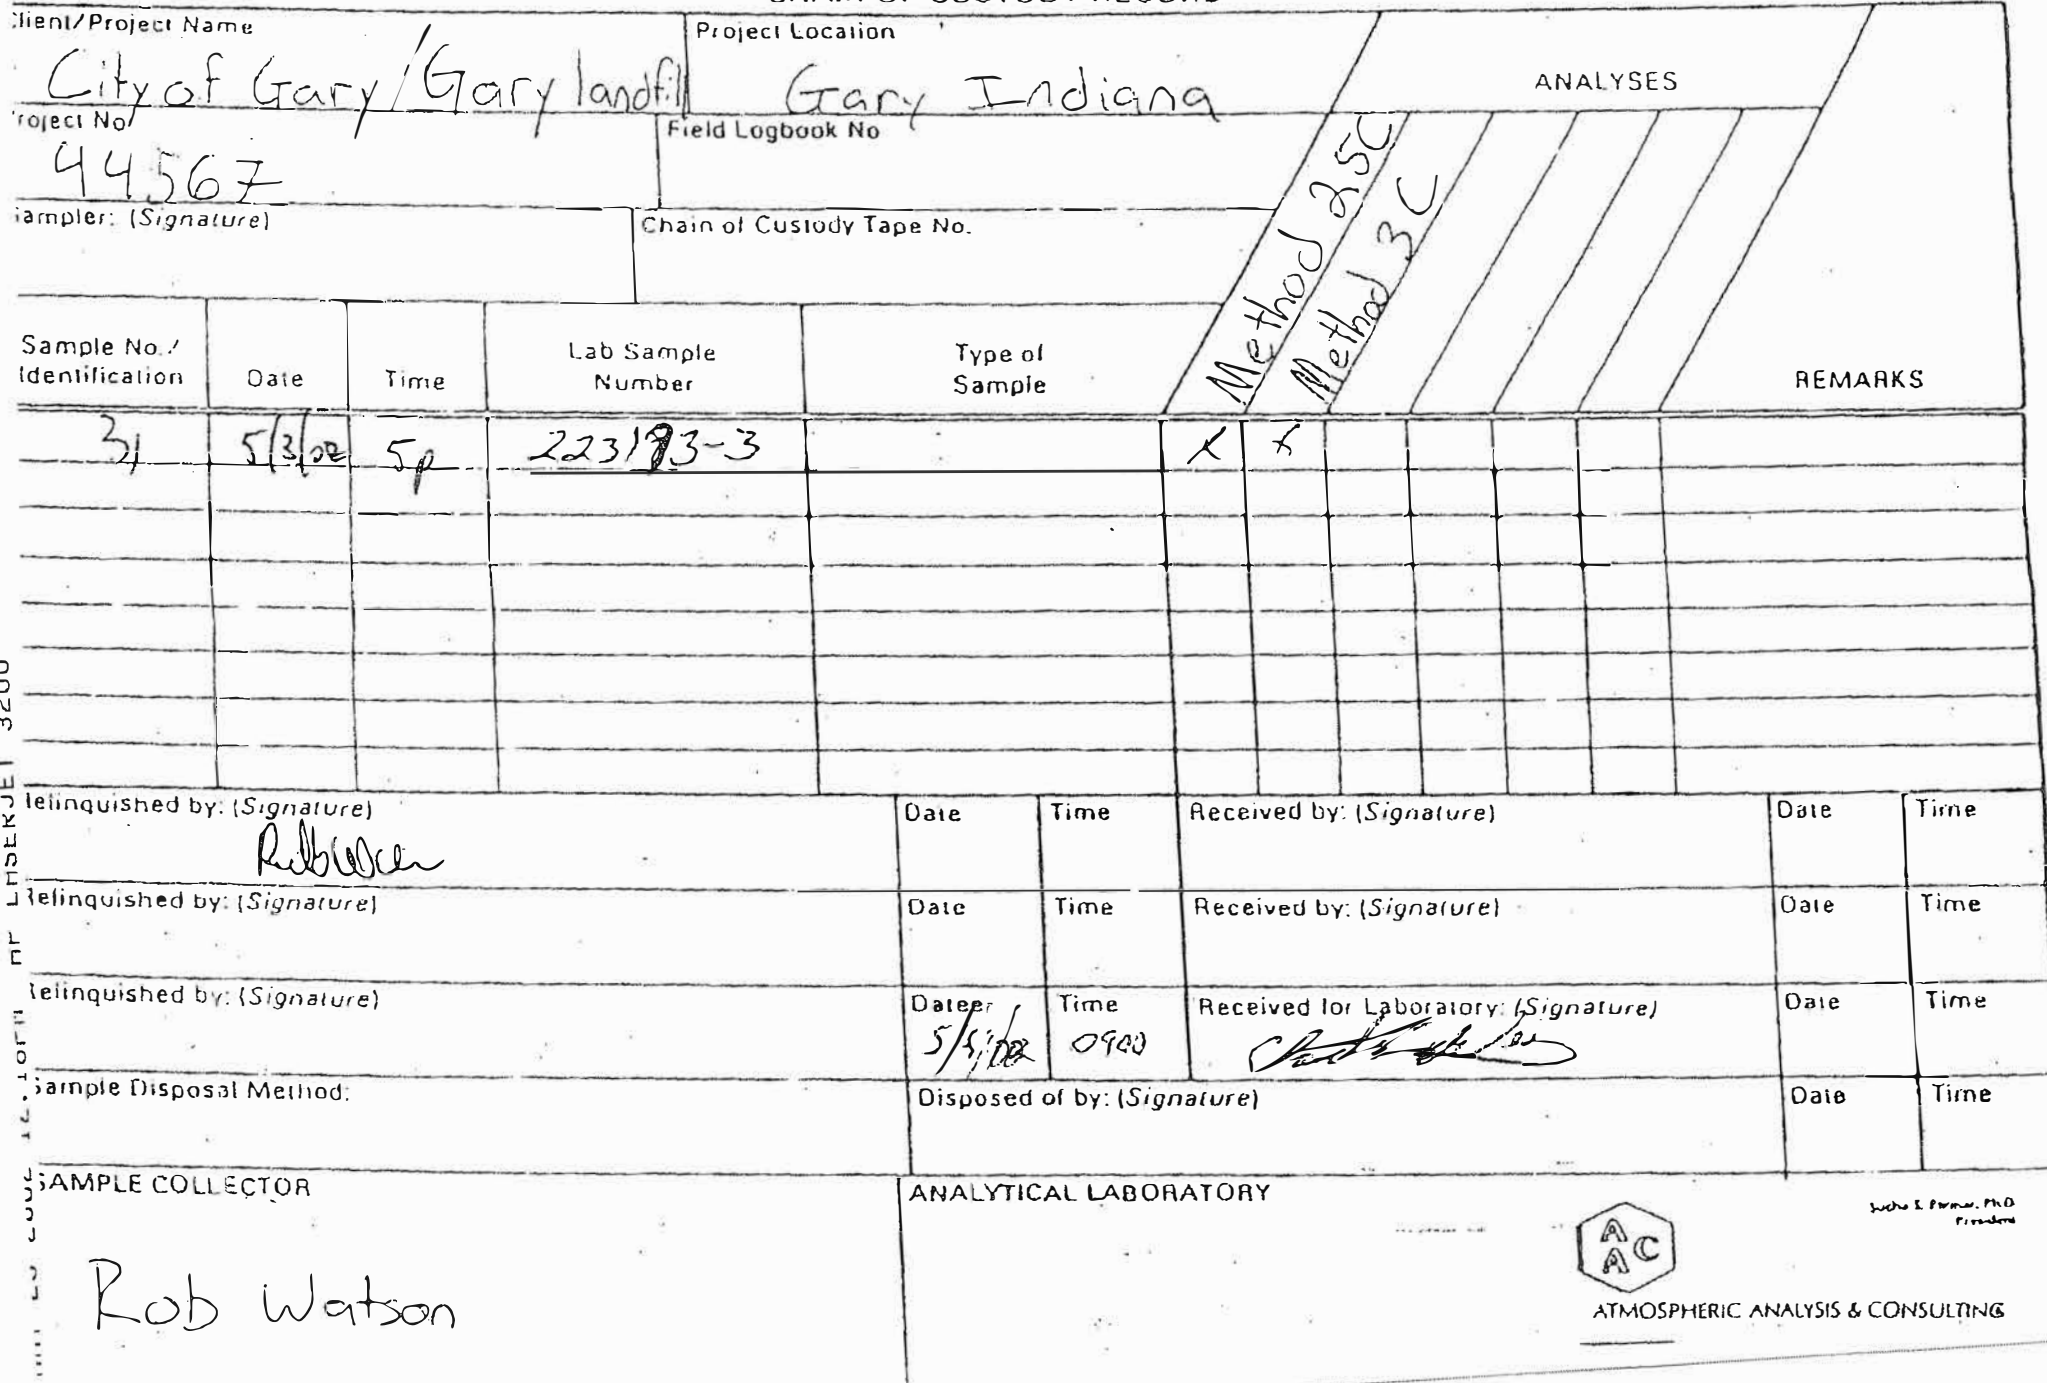 Client/Project Name
City of Gary/Gary landfill
Project Location
Gary Indiana
ANALYSES
Project No
44567
Field Logbook No
Sampler: (Signature)
Chain of Custody Tape No.
Method 25C
Method 3C
Sample No./
Identification
Date
Time
Lab Sample
Number
Type of
Sample
REMARKS
5/3/02
5p
X
X
Relinquished by: (Signature)
Date
Time
Received by: (Signature)
Date
Time
Relinquished by: (Signature)
Date
Time
Received by: (Signature)
Date
Time
Relinquished by: (Signature)
Date
Time
0900
Received for Laboratory: (Signature)
Date
Time
Sample Disposal Method:
Disposed of by: (Signature)
Date
Time
SAMPLE COLLECTOR
Rob Watson
ANALYTICAL LABORATORY
AAC
ATMOSPHERIC ANALYSIS & CONSULTING
LASERJET 3200